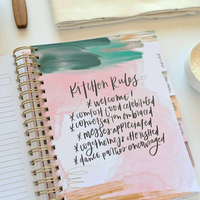 Kitchen Rules:
x welcome!
x comfort food celebrated
x conversation embraced
x messes appreciated
x togetherness cherished
x dance parties encouraged